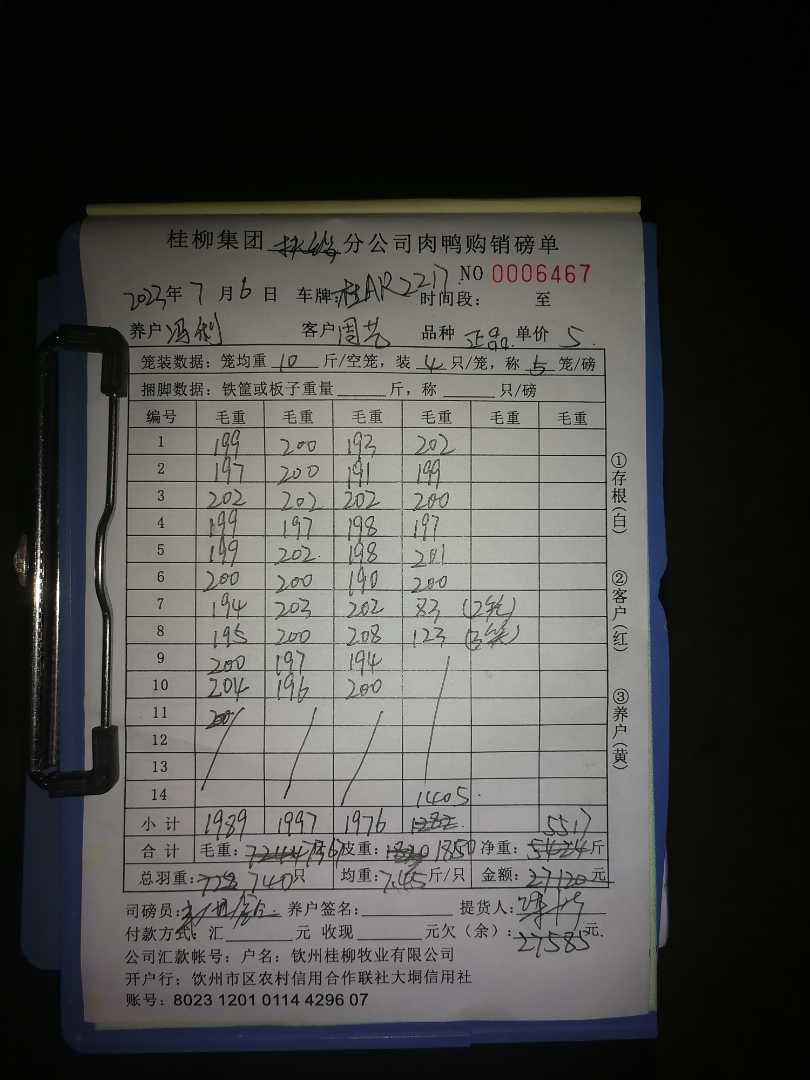 桂柳集团 分公司肉鸭购销磅单
NO 0006467
2023年 7 月 6 日 车牌:桂AR2217 时间段: 至
养户 冯 客户 周艺 品种 正品 单价 5.
笼装数据:笼均重 10 斤/空笼,装 4 只/笼,称 5 笼/磅
捆脚数据:铁筐或板子重量 斤,称 只/磅
编号 毛重 毛重 毛重 毛重 毛重 毛重
1 199 200 193 202
2 197 200 191 199
3 202 202 202 200
4 199 197 198 197
5 199 202. 198 201
6 200 200 190 200
7 194 203 202 83 (2笼)
8 195 200 208 123 (3笼)
9 200 197 194
10 204 196 200
11 200
12
13
14 1405.
小计 1989 1997 1976 1282 5517
合计 毛重: 7244 7367 皮重: 1820 1850 净重: 5424 斤
总羽重: 728 740只 均重: 7.45斤/只 金额: 27120 元
司磅员: 养户签名: 提货人:
付款方式:汇 元 收现 元欠(余): 27585 元.
公司汇款帐号:户名:钦州桂柳牧业有限公司
开户行:钦州市区农村信用合作联社大垌信用社
账号:8023 1201 0114 4296 07
①存根(白)
②客户(红)
③养户(黄)